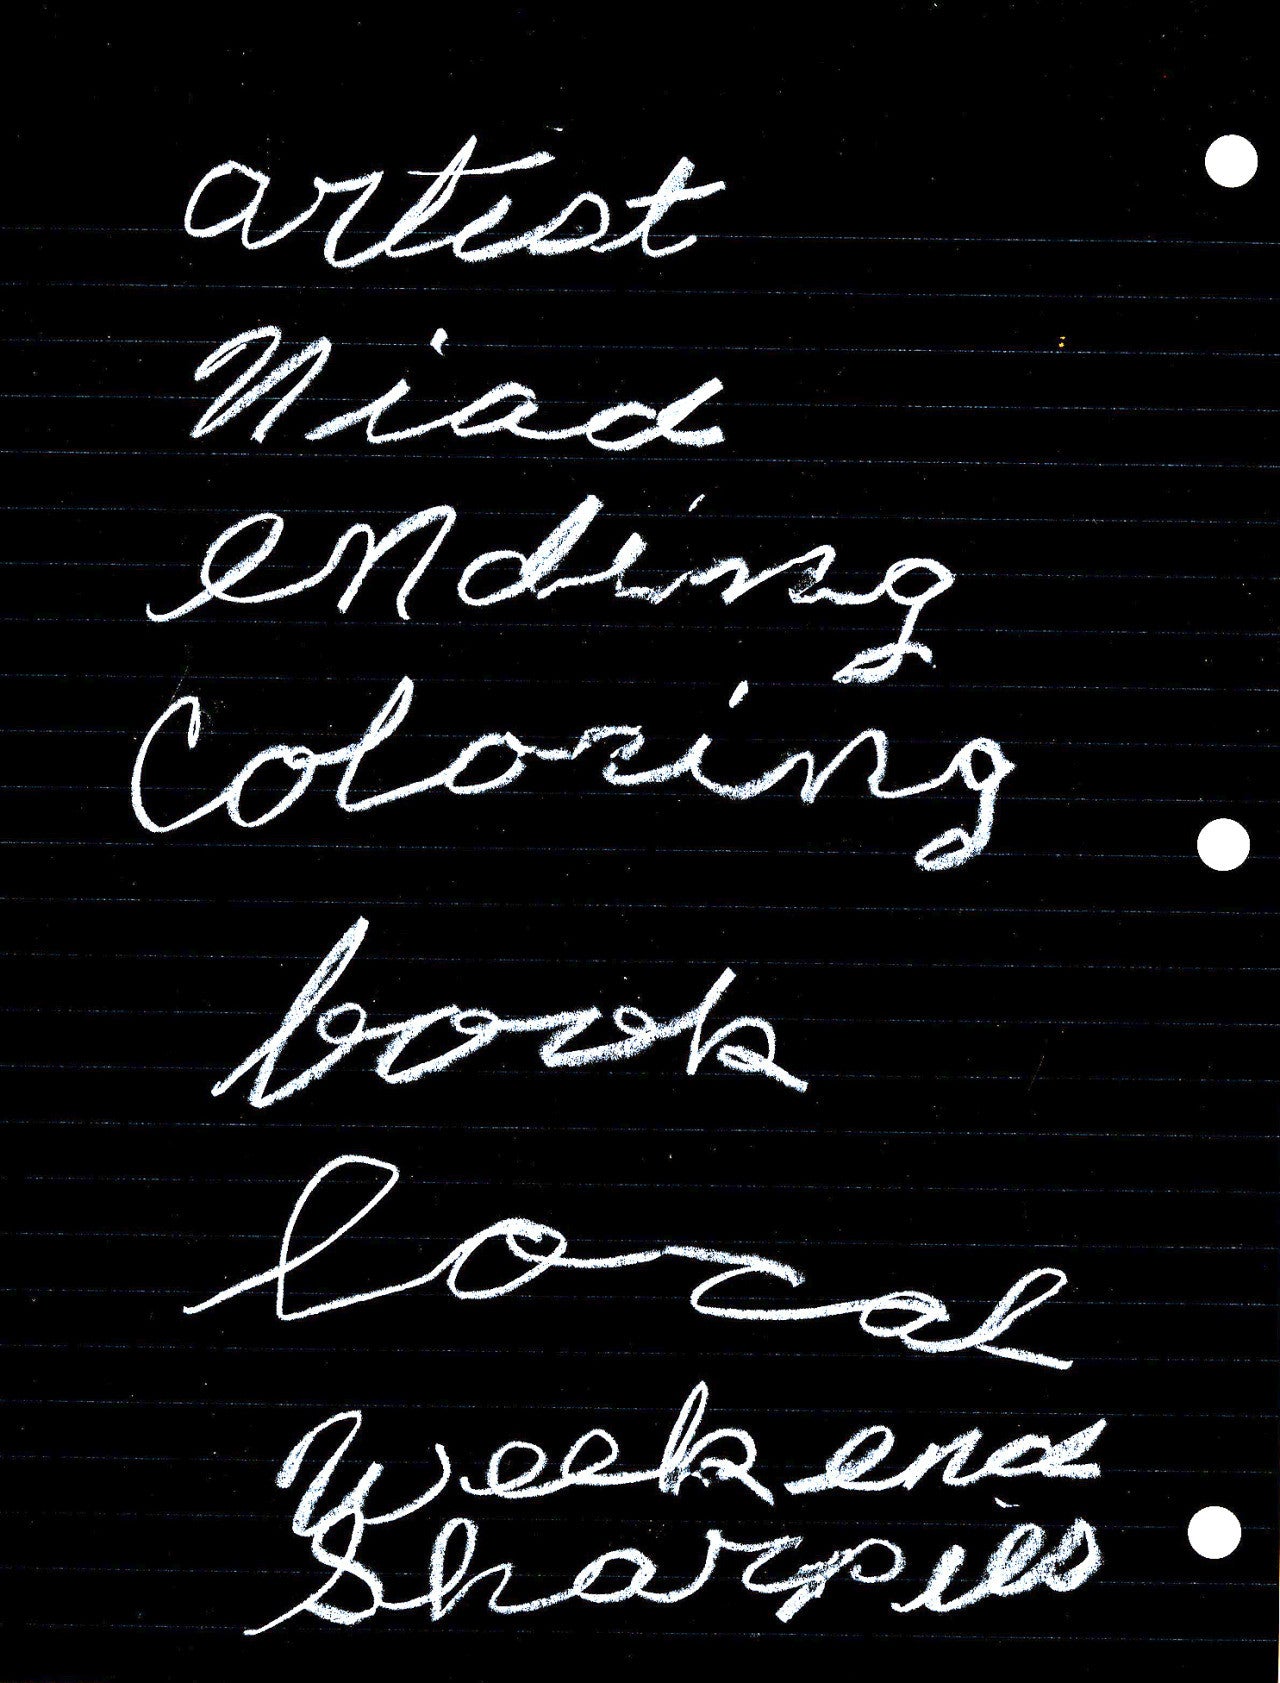 artist
Niad
ending
Coloring
book
local
Weekend
Sharpies